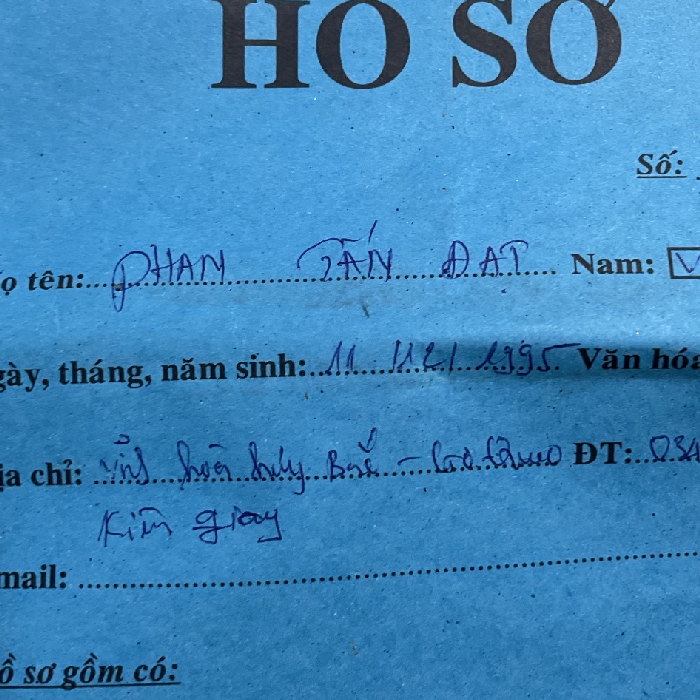 HỒ SƠ
Số:
ọ tên: PHAN TẤN ĐẠT Nam:
gày, tháng, năm sinh: 11 / 12 / 1995 Văn hóa
ịa chỉ: Bắc - ĐT: 034
Kiên giang
mail:
ồ sơ gồm có: